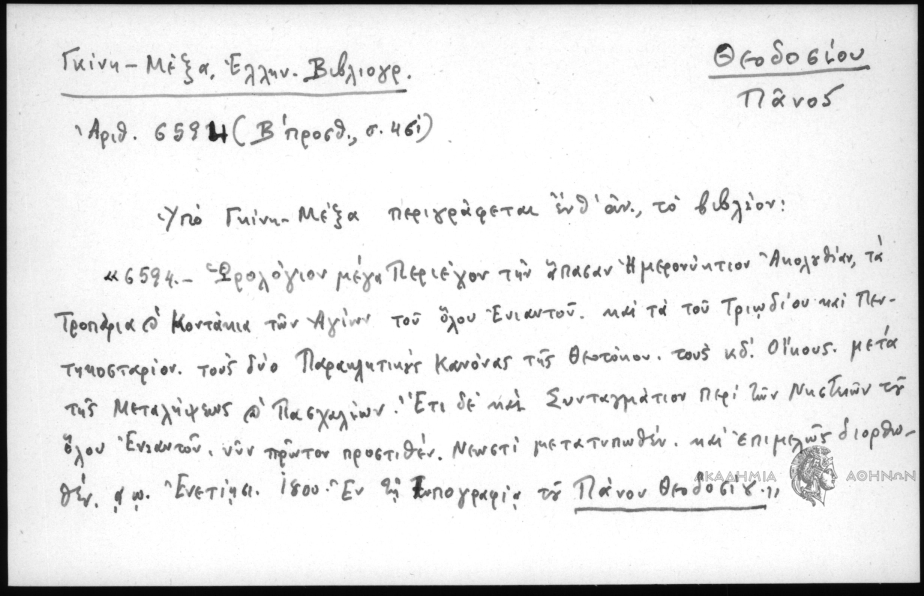 Γκίνη-Μέξα, Ἑλλην. Βιβλιογρ.
Θεοδοσίου
Πᾶνος
Ἀριθ. 6594 (Β' προσθ., σ. 461)
Ὑπὸ Γκίνη-Μέξα περιγράφεται ἔνθ' ἀν., τὸ βιβλίον:
«6594.- Ὡρολόγιον μέγα Περιέχον τὴν ἅπασαν Ἡμερονύκτιον Ἀκολυθίαν, τὰ
Τροπάρια Κοντάκια τῶν Ἁγίων τοῦ ὅλου Ἐνιαυτοῦ. καὶ τὰ τοῦ Τριῳδίου καὶ Πεν-
τηκοσταρίου. τοὺς δύο Παρακλητικὺς Κανόνας τῆς Θεοτόκου. τοὺς κδ'. Οἴκους. μετὰ
τῆς Μεταλήψεως Πασχαλίων. Ἔτι δὲ καὶ Συνταγμάτιον περὶ τῶν Νηστειῶν τῦ
ὅλου Ἐνιαυτοῦ. νῦν πρῶτον προστιθέν. Νεωστὶ μετατυπωθέν. καὶ ἐπιμελῶς διορθω-
θέν. ͵αω. Ἐνετίῃσι. 1800. Ἐν τῇ Τυπογραφίᾳ τῦ Πάνου Θεοδοσίυ.»
ΑΚΑΔΗΜΙΑ ΑΘΗΝΩΝ